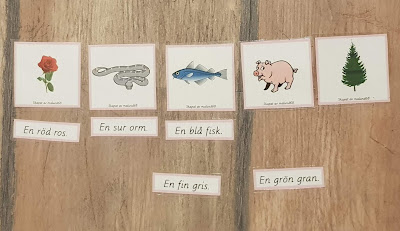 En röd ros.
En sur orm.
En blå fisk.
En fin gris.
En grön gran.